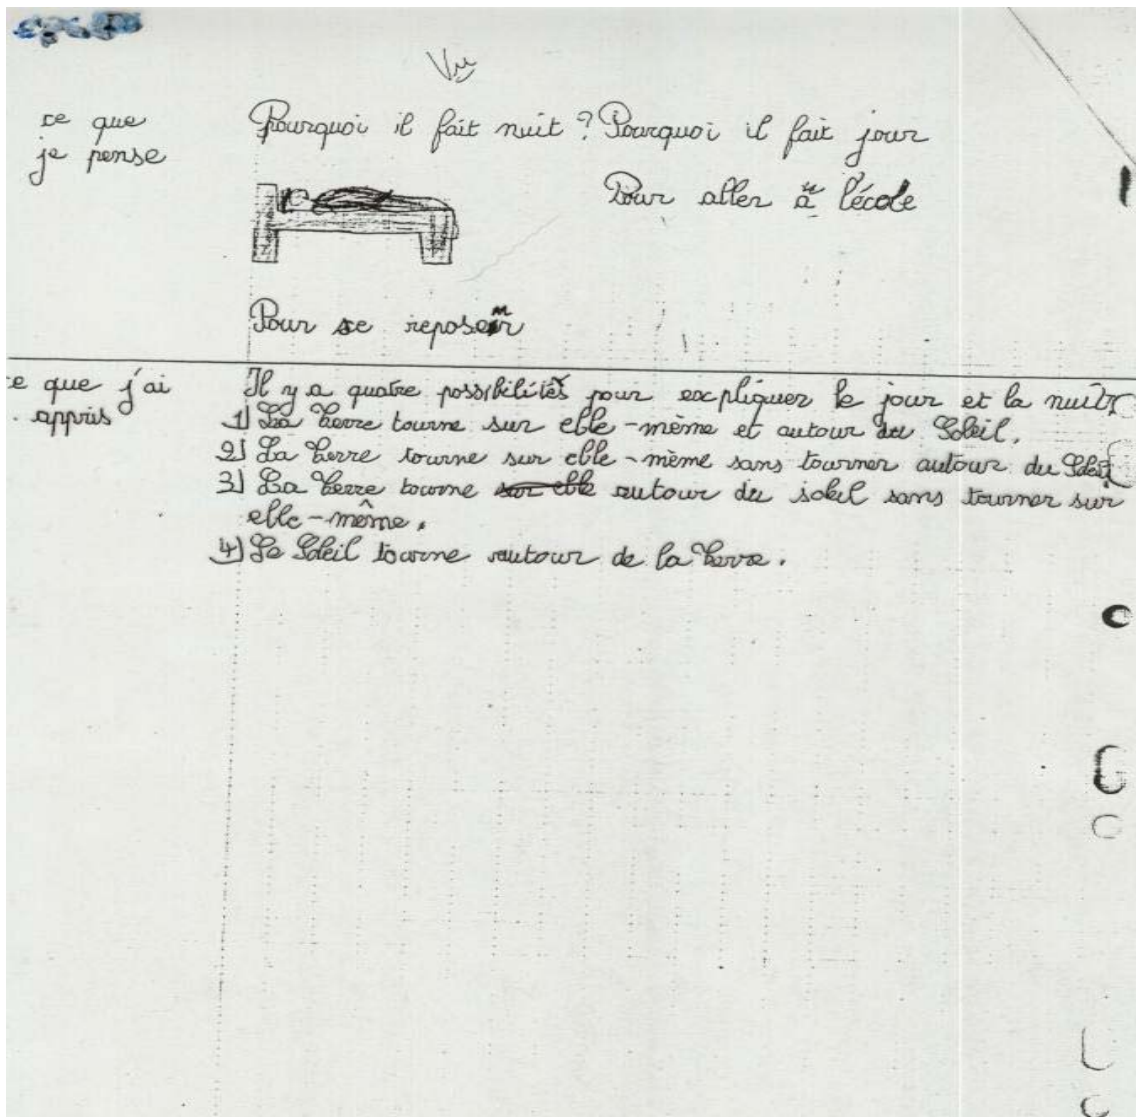 Vu
ce que
je pense
Pourquoi il fait nuit ? Pourquoi il fait jour
Pour aller à l'école
Pour se reposer
ce que j'ai
appris
Il y a quatre possibilités pour expliquer le jour et la nuit
1) La Terre tourne sur elle-même et autour du Soleil.
2) La Terre tourne sur elle-même sans tourner autour du Soleil
3) La Terre tourne sur elle autour du soleil sans tourner sur
elle-même.
4) Le Soleil tourne autour de la Terre.